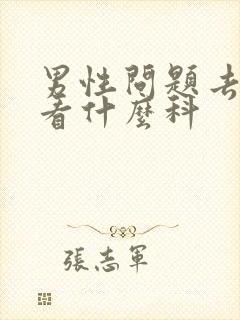 男性問題去
看什麼科
張志軍